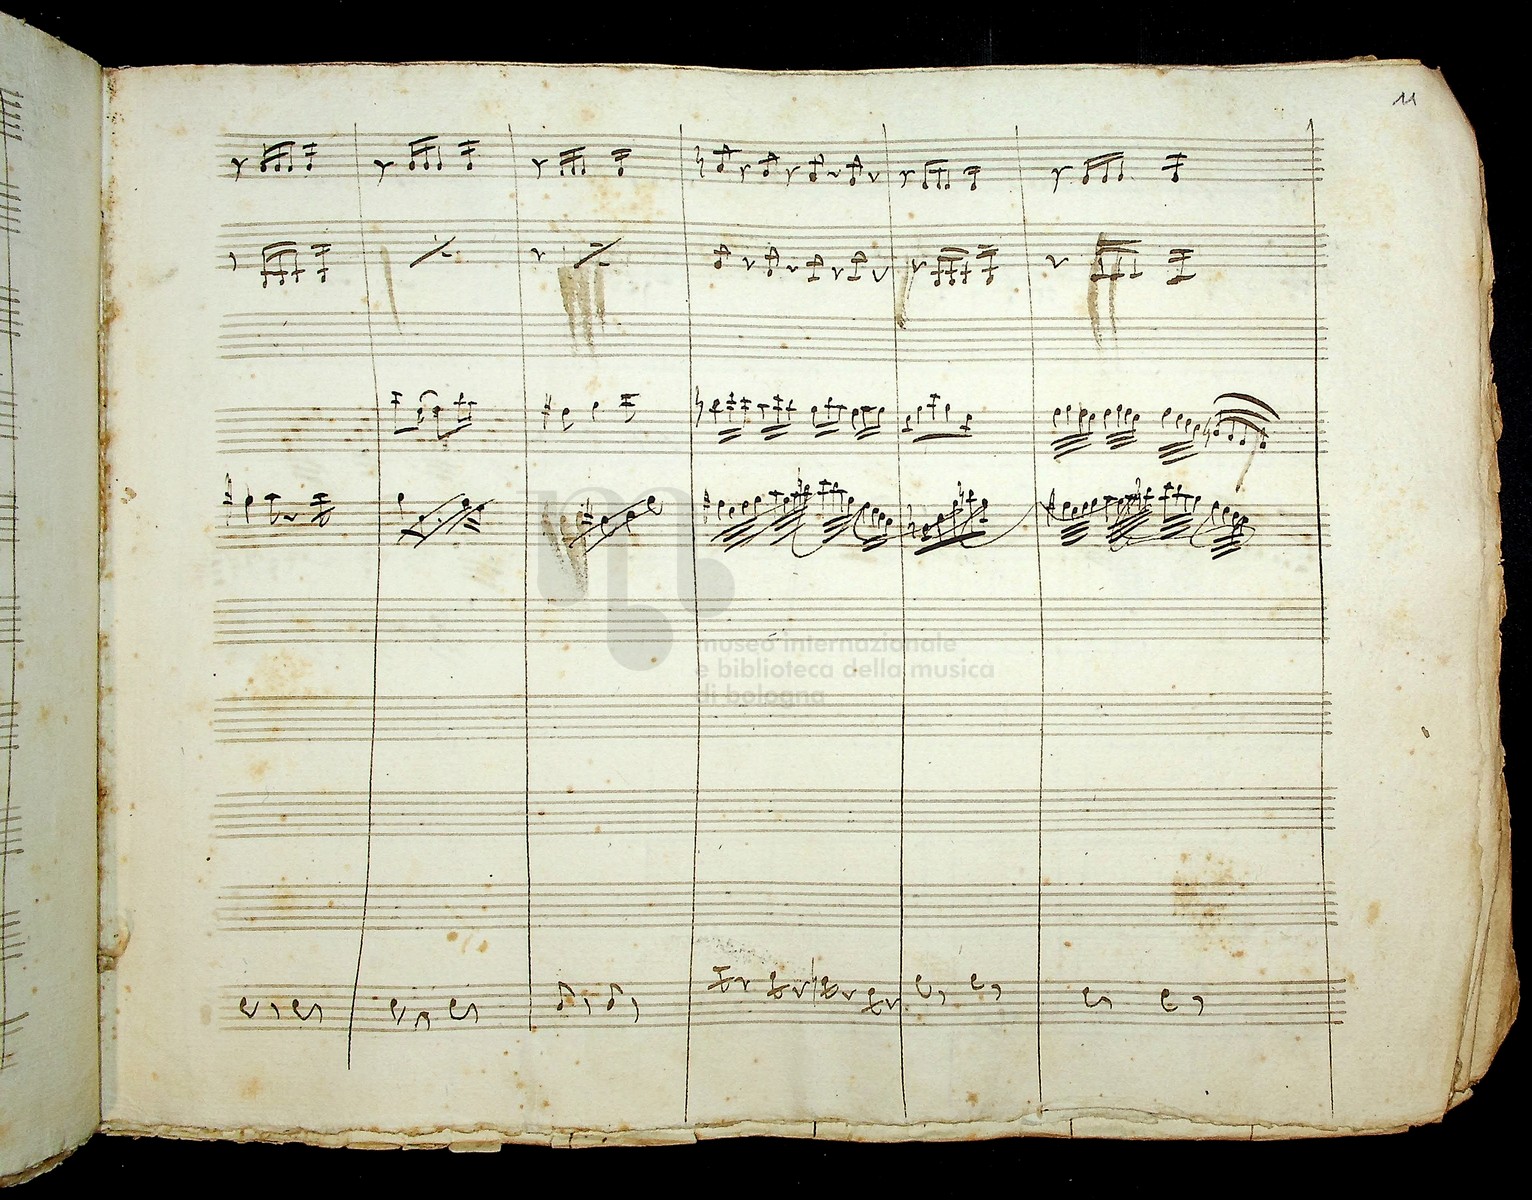 11
museo internazionale
e biblioteca della musica
di bologna